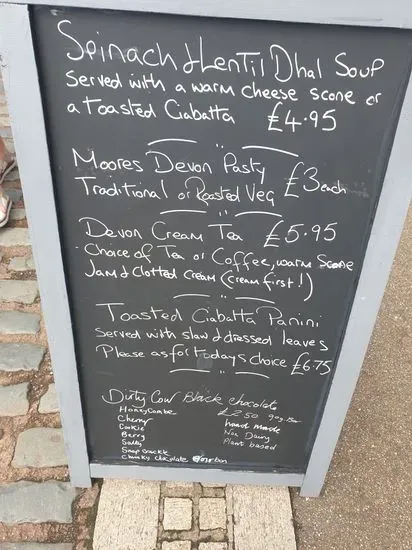 Spinach & Lentil Dhal Soup
Served with a warm cheese scone or
a Toasted Ciabatta £4.95
Moores Devon Pasty £3 each
Traditional or Roasted Veg
Devon Cream Tea £5.95
Choice of Tea or Coffee, warm Scone
Jam & Clotted Cream (Cream first!)
Toasted Ciabatta Panini
Served with slaw & dressed leaves
Please as for todays choice £6.75
Dirty Cow Black chocolate
£2.50 90g Bar
Honeycombe
Cherry
Cookie
Berry
Salty
Snap Crackk
Chunky chocolate
hand made
Non Dairy
Plant based